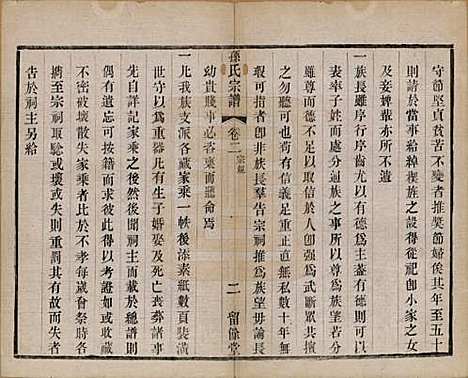 守節堅貞貧苦不變者推獎節婦俟其年至五十
則請於當事給綽楔族之設得從祀卽小家之女
及妾婢輩亦所不遺
一族長雖序行序齒尤以有德爲主蓋有德則可以
表率子姓以當一族之事所以尊爲族長無德之人
雖尊長其何能取信於人卽以爲武斷衆其
之勿聽可也有德之尤足重正直無私數十年無
瑕可指者卽非族長羣告宗祠推爲族望毋論長
孫氏宗譜
卷二
宗規
二
留餘堂
幼貴賤事必咨稟而聽命焉
一凡我族支派各藏家乘一帙後添素紙數頁裝潢
世守以爲重器凡有生子婚娶及死亡喪葬諸事
先自詳記家乘之後然後聞祠主而載於總譜則
偶有遺失可按籍而求彼此得以考補使知家乘
不密被壞散失家乘者比於不孝每歲會祭時各
攜至宗祠取騐或壞或失則重罰其有故而失者
告於祠主另給